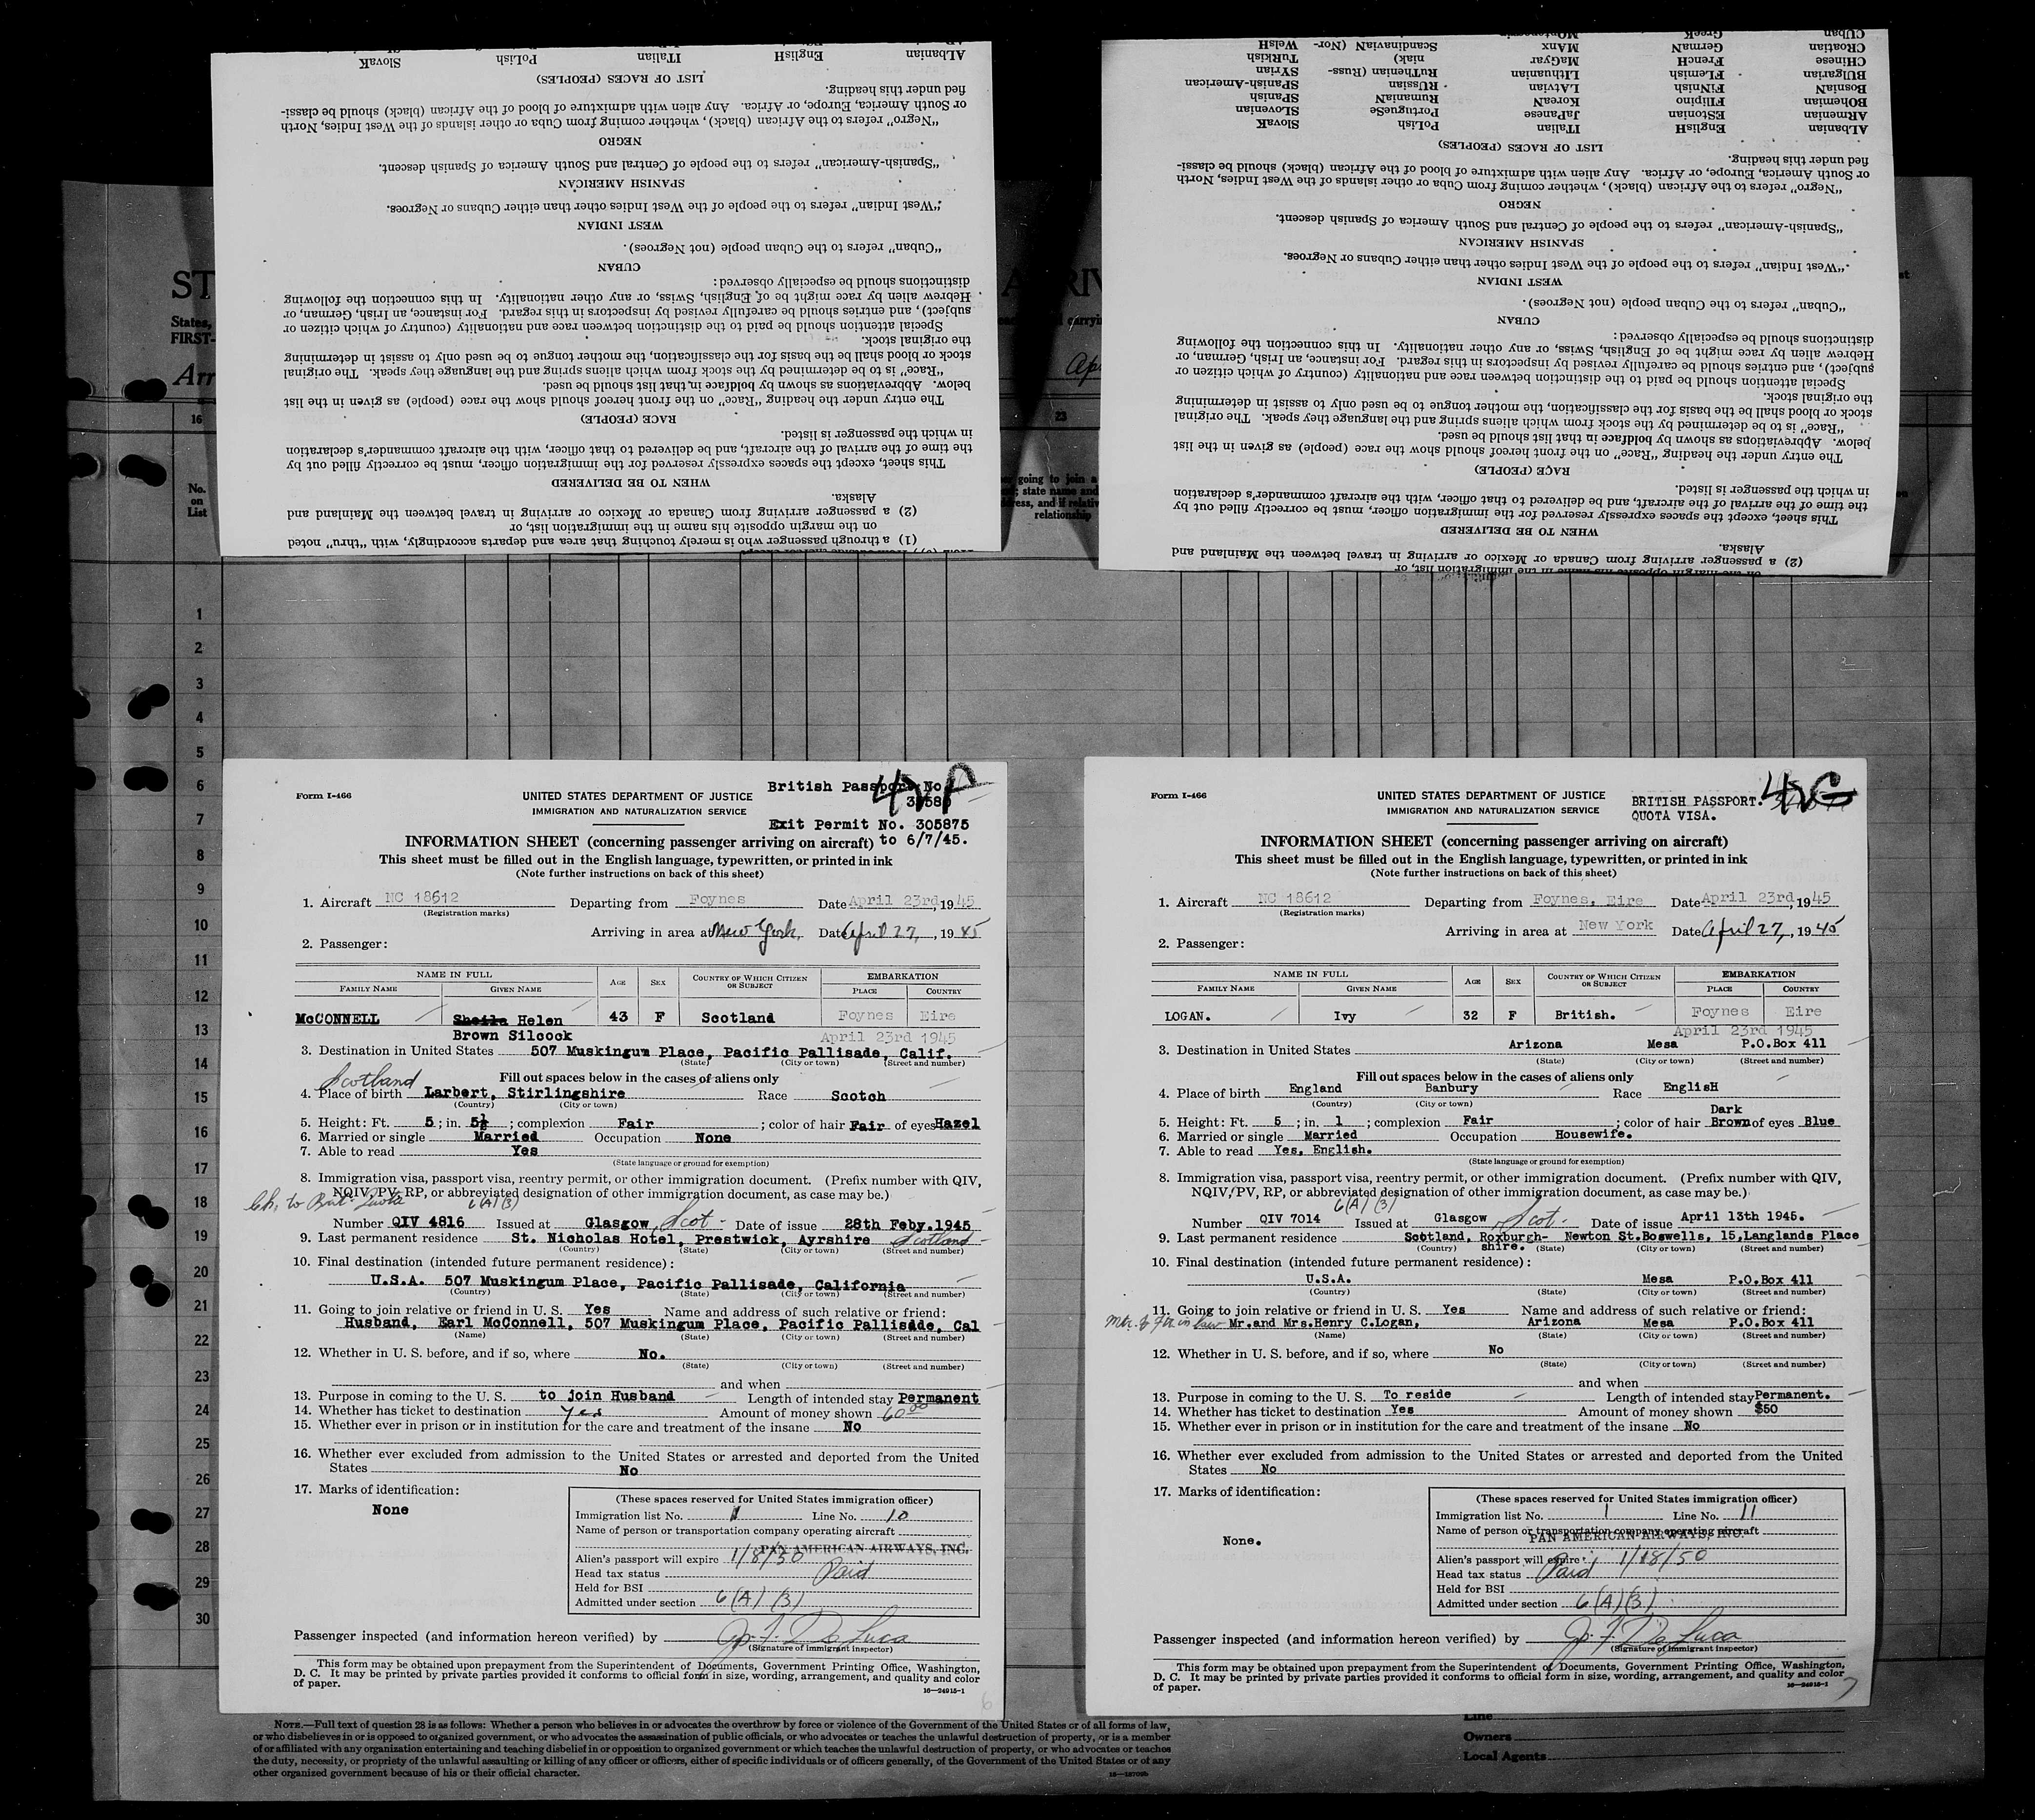 ALbanian EnglisH ITalian PoLish SlovaK
LIST OF RACES (PEOPLES)
fied under this heading.
or South America, Europe, or Africa. Any alien with admixture of blood of the African (black) should be classi-
"Negro" refers to the African (black), whether coming from Cuba or other islands of the West Indies, North
NEGRO
"Spanish-American" refers to the people of Central and South America of Spanish descent.
SPANISH AMERICAN
"West Indian" refers to the people of the West Indies other than either Cubans or Negroes.
WEST INDIAN
"Cuban" refers to the Cuban people (not Negroes).
CUBAN
distinctions should be especially observed:
Hebrew alien by race might be of English, Swiss, or any other nationality. In this connection the following
subject), and entries should be carefully revised by inspectors in this regard. For instance, an Irish, German, or
Special attention should be paid to the distinction between race and nationality (country of which citizen or
the original stock.
stock or blood shall be the basis for the classification, the mother tongue to be used only to assist in determining
"Race" is to be determined by the stock from which aliens spring and the language they speak. The original
below. Abbreviations as shown by boldface in that list should be used.
The entry under the heading "Race" on the front hereof should show the race (people) as given in the list
RACE (PEOPLE)
in which the passenger is listed.
the time of the arrival of the aircraft, and be delivered to that officer, with the aircraft commander's declaration
This sheet, except the spaces expressly reserved for the immigration officer, must be correctly filled out by
WHEN TO BE DELIVERED
Alaska.
(2) a passenger arriving from Canada or Mexico or arriving in travel between the Mainland and
on the margin opposite his name in the immigration list, or
(1) a through passenger who is merely touching that area and departs accordingly, with "thru" noted
CUban GreeK
CRoatian GermaN MAnx Scandinavian (Nor- WelsH
CHinese FrencH MaGyar niak) TuRkish
BUlgarian FLemish LIthuanian RuThenian (Russ- SYrian
BosniaN FiNnish LAtvian RUssian SPanish-American
BOhemian FIlipino KoreaN RumaniaN SPanish
ARmenian EStonian JaPanese PortugueSe SLovenian
ALbanian EnglisH ITalian PoLish SlovaK
LIST OF RACES (PEOPLES)
fied under this heading.
or South America, Europe, or Africa. Any alien with admixture of blood of the African (black) should be classi-
"Negro" refers to the African (black), whether coming from Cuba or other islands of the West Indies, North
NEGRO
"Spanish-American" refers to the people of Central and South America of Spanish descent.
SPANISH AMERICAN
"West Indian" refers to the people of the West Indies other than either Cubans or Negroes.
WEST INDIAN
"Cuban" refers to the Cuban people (not Negroes).
CUBAN
distinctions should be especially observed:
Hebrew alien by race might be of English, Swiss, or any other nationality. In this connection the following
subject), and entries should be carefully revised by inspectors in this regard. For instance, an Irish, German, or
Special attention should be paid to the distinction between race and nationality (country of which citizen or
the original stock.
stock or blood shall be the basis for the classification, the mother tongue to be used only to assist in determining
"Race" is to be determined by the stock from which aliens spring and the language they speak. The original
below. Abbreviations as shown by boldface in that list should be used.
The entry under the heading "Race" on the front hereof should show the race (people) as given in the list
RACE (PEOPLE)
in which the passenger is listed.
the time of the arrival of the aircraft, and be delivered to that officer, with the aircraft commander's declaration
This sheet, except the spaces expressly reserved for the immigration officer, must be correctly filled out by
WHEN TO BE DELIVERED
Alaska.
(2) a passenger arriving from Canada or Mexico or arriving in travel between the Mainland and
on the margin opposite his name in the immigration list, or
ST
States,
FIRST-
Arr
16
No.
on
List
23
going to join a
; state name and
dress, and if relative
relationship
1
2
3
4
5
6
7
8
9
10
11
12
13
14
15
16
17
18
19
20
21
22
23
24
25
26
27
28
29
30
Form I-466
UNITED STATES DEPARTMENT OF JUSTICE
IMMIGRATION AND NATURALIZATION SERVICE
British Passport No
Exit Permit No. 305875
to 6/7/45.
INFORMATION SHEET (concerning passenger arriving on aircraft)
This sheet must be filled out in the English language, typewritten, or printed in ink
(Note further instructions on back of this sheet)
1. Aircraft NC 18612 Departing from Foynes Date April 23rd, 1945
(Registration marks)
Arriving in area at New York, Date April 27, 1945
2. Passenger:
NAME IN FULL AGE SEX COUNTRY OF WHICH CITIZEN OR SUBJECT EMBARKATION
FAMILY NAME GIVEN NAME PLACE COUNTRY
McCONNELL Sheila Helen 43 F Scotland Foynes Eire
Brown Silcock April 23rd 1945
3. Destination in United States 507 Muskingum Place, Pacific Pallisade, Calif.
(State) (City or town) (Street and number)
Fill out spaces below in the cases of aliens only
Scotland
4. Place of birth Larbert, Stirlingshire Race Scotch
(Country) (City or town)
5. Height: Ft. 5; in. 5½; complexion Fair; color of hair Fair of eyes Hazel
6. Married or single Married Occupation None
7. Able to read Yes
(State language or ground for exemption)
8. Immigration visa, passport visa, reentry permit, or other immigration document. (Prefix number with QIV,
NQIV, PV, RP, or abbreviated designation of other immigration document, as case may be.)
Ch. to Brit. Quota 6(A)(3)
Number QIV 4816 Issued at Glasgow, Scot- Date of issue 28th Feby.1945
9. Last permanent residence St. Nicholas Hotel, Prestwick, Ayrshire Scotland-
(Country) (State) (City or town) (Street and number)
10. Final destination (intended future permanent residence):
U.S.A. 507 Muskingum Place, Pacific Pallisade, California
(Country) (State) (City or town) (Street and number)
11. Going to join relative or friend in U. S. Yes Name and address of such relative or friend:
Husband, Earl McConnell, 507 Muskingum Place, Pacific Pallisade, Cal
(Name) (State) (City or town) (Street and number)
12. Whether in U. S. before, and if so, where No.
(State) (City or town) (Street and number)
and when
13. Purpose in coming to the U. S. to join Husband Length of intended stay Permanent
14. Whether has ticket to destination Yes Amount of money shown 60.00
15. Whether ever in prison or in institution for the care and treatment of the insane No
16. Whether ever excluded from admission to the United States or arrested and deported from the United
States No
17. Marks of identification:
None
(These spaces reserved for United States immigration officer)
Immigration list No. 1 Line No. 10
Name of person or transportation company operating aircraft
PAN AMERICAN AIRWAYS, INC.
Alien's passport will expire 1/8/50
Head tax status Paid
Held for BSI
Admitted under section 6(A)(3)
Passenger inspected (and information hereon verified) by Jo. F. De Luca
(Signature of immigrant inspector)
This form may be obtained upon prepayment from the Superintendent of Documents, Government Printing Office, Washington,
D. C. It may be printed by private parties provided it conforms to official form in size, wording, arrangement, and quality and color
of paper.
16—24915-1
6
Form I-466
UNITED STATES DEPARTMENT OF JUSTICE
IMMIGRATION AND NATURALIZATION SERVICE
BRITISH PASSPORT.
QUOTA VISA.
INFORMATION SHEET (concerning passenger arriving on aircraft)
This sheet must be filled out in the English language, typewritten, or printed in ink
(Note further instructions on back of this sheet)
1. Aircraft NC 18612 Departing from Foynes, Eire Date April 23rd, 1945
(Registration marks)
Arriving in area at New York Date April 27, 1945
2. Passenger:
NAME IN FULL AGE SEX COUNTRY OF WHICH CITIZEN OR SUBJECT EMBARKATION
FAMILY NAME GIVEN NAME PLACE COUNTRY
LOGAN. Ivy 32 F British. Foynes Eire
April 23rd 1945
3. Destination in United States Arizona Mesa P.O.Box 411
(State) (City or town) (Street and number)
Fill out spaces below in the cases of aliens only
4. Place of birth England Banbury Race EnglisH
(Country) (City or town)
5. Height: Ft. 5; in. 1; complexion Fair; color of hair Dark Brown of eyes Blue
6. Married or single Married Occupation Housewife.
7. Able to read Yes, English.
(State language or ground for exemption)
8. Immigration visa, passport visa, reentry permit, or other immigration document. (Prefix number with QIV,
NQIV, PV, RP, or abbreviated designation of other immigration document, as case may be.)
6(A)(3)
Number QIV 7014 Issued at Glasgow, Scot- Date of issue April 13th 1945.
9. Last permanent residence Scotland, Roxburgh-shire. Newton St.Boswells, 15,Langlands Place
(Country) (State) (City or town) (Street and number)
10. Final destination (intended future permanent residence):
U.S.A. Mesa P.O.Box 411
(Country) (State) (City or town) (Street and number)
11. Going to join relative or friend in U. S. Yes Name and address of such relative or friend:
in law Mr.and Mrs.Henry C.Logan, Arizona Mesa P.O.Box 411
(Name) (State) (City or town) (Street and number)
12. Whether in U. S. before, and if so, where No
(State) (City or town) (Street and number)
and when
13. Purpose in coming to the U. S. To reside Length of intended stay Permanent.
14. Whether has ticket to destination Yes Amount of money shown $50
15. Whether ever in prison or in institution for the care and treatment of the insane No
16. Whether ever excluded from admission to the United States or arrested and deported from the United
States No
17. Marks of identification:
None.
(These spaces reserved for United States immigration officer)
Immigration list No. 1 Line No. 11
Name of person or transportation company operating aircraft
PAN AMERICAN AIRWAYS, INC.
Alien's passport will expire 1/18/50
Head tax status Paid
Held for BSI
Admitted under section 6(A)(3)
Passenger inspected (and information hereon verified) by Jo. F. De Luca
(Signature of immigrant inspector)
This form may be obtained upon prepayment from the Superintendent of Documents, Government Printing Office, Washington,
D. C. It may be printed by private parties provided it conforms to official form in size, wording, arrangement, and quality and color
of paper.
16—24915-1
7
NOTE.—Full text of question 28 is as follows: Whether a person who believes in or advocates the overthrow by force or violence of the Government of the United States or of all forms of law,
or who disbelieves in or is opposed to organized government, or who advocates the assassination of public officials, or who advocates or teaches the unlawful destruction of property, or is a member
of or affiliated with any organization entertaining and teaching disbelief in or opposition to organized government or which teaches the unlawful destruction of property, or who advocates or teaches
the duty, necessity, or propriety of the unlawful assaulting or killing of any officer or officers, either of specific individuals or of officers generally, of the Government of the United States or of any
other organized government because of his or their official character.
Line
Owners
Local Agents